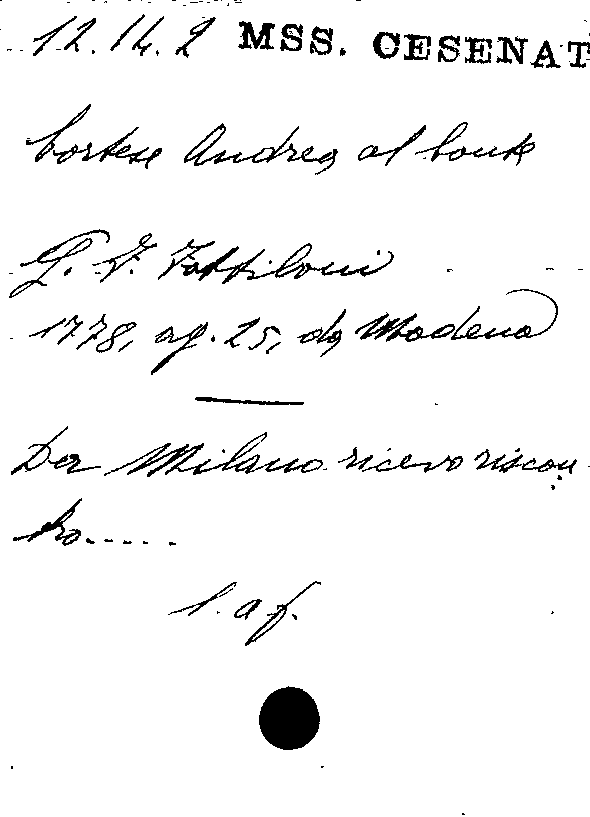 12.14.2 MSS. CESENAT
Cortese Andrea al Conte
G. F. Fattiboni
1778, ag. 25, da Modena
Da Milano ricevo riscon
tro.....
l. af.